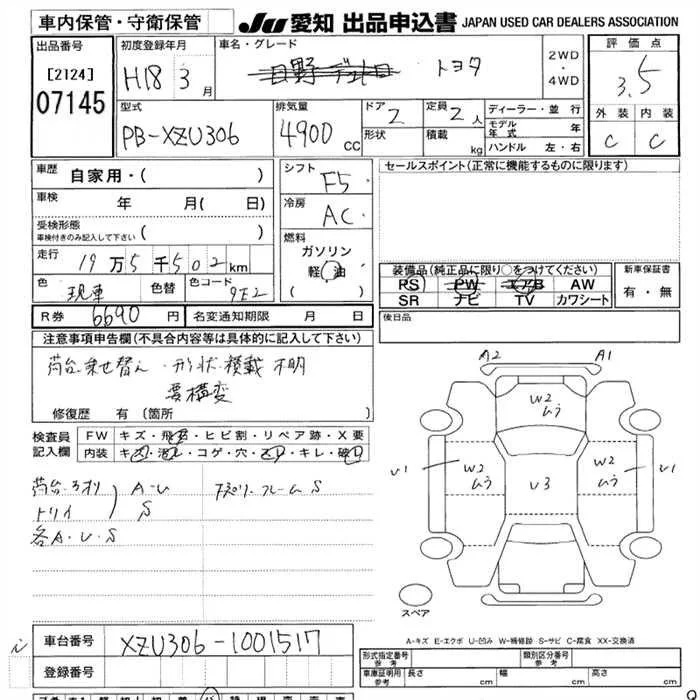 車内保管・守衛保管
JU 愛知 出品申込書 JAPAN USED CAR DEALERS ASSOCIATION
出品番号 初度登録年月 車名・グレード 評価点
[2124] H18 3月 日野 デュトロ トヨタ 2WD・4WD 3.5
07145
型式 排気量 ドア 2 定員 2人 ディーラー・並行 外装 内装
PB-XZU306 4900cc 形状 積載 kg モデル年式 年 C C
ハンドル 左・右
車歴 自家用・( ) シフト F5 セールスポイント(正常に機能するものに限ります)
車検 年 月( 日) 冷房 AC
受検形態
車検付きのみ記入して下さい ( ) 燃料
走行 19万5千502km ガソリン
軽油
( )
装備品(純正品に限り○をつけてください) 新車保証書
色 現車 色替 色コード 9E2 PS PW エアB AW 有・無
SR ナビ TV カワシート
R券 6690円 名変通知期限 月 日 後日品
注意事項申告欄(不具合内容等は具体的に記入して下さい)
荷台乗せ替え・形状・積載 不明
要構変
修復歴 有 [箇所 ]
検査員記入欄 FW キズ・飛石・ヒビ割・リペア跡・X要
内装 キズ・汚れ・コゲ・穴・スレ・キレ・破れ
荷台・アオリ A-U 下廻り・フレーム S
トリイ S
各A・U・S
A2 A1
W2 ムラ
U1 W2 ムラ U3 W2 ムラ U1
スペア
A-キズ E-エクボ U-凹み W-補修跡 S-サビ C-腐食 XX-交換済
車台番号 XZU306-1001517
登録番号
形式指定番号 参考 類別区分番号 参考
車庫証明用 参考 長さ cm 幅 cm 高さ cm